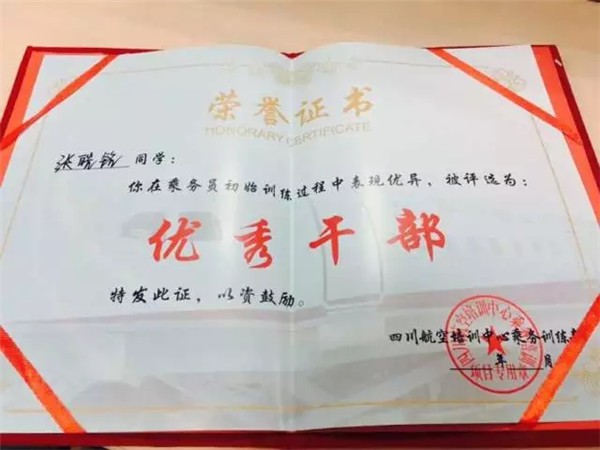 荣誉证书
HONORARY CERTIFICATE
张聪 同学：
你在乘务员初始训练过程中表现优异，被评选为：
优秀干部
特发此证，以资鼓励。
四川航空培训中心乘务训练
年 月